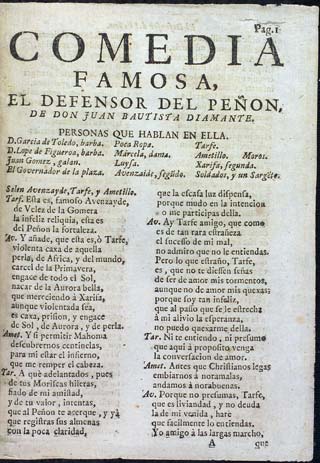 Pag. 1
COMEDIA
FAMOSA,
EL DEFENSOR DEL PEÑON,
DE DON JUAN BAUTISTA DIAMANTE.
PERSONAS QUE HABLAN EN ELLA.
D. Garcia de Toledo, barba.
D. Lope de Figueroa, barba.
Juan Gomez, galan.
El Governador de la plaza.
Poca Ropa.
Marcela, dama.
Luysa.
Avenzaide, segũdo.
Tarfe.
Ametillo. Moros.
Xarifa, segunda.
Soldados, y un Sargẽto.
Salen Avenzayde, Tarfe, y Ametillo.
Tarf. Esta es, famoso Avenzayde,
de Velez de la Gomera
la infeliz reliquia, esta es
del Peñon la fortaleza.
Av. Y añade, que esta es, ò Tarfe,
violenta caxa de aquella
perla, de Africa, y del mundo,
carcel de la Primavera,
engace de todo el Sol,
nacar de la Aurora bella,
que mereciendo à Xarifa,
aunque violentada sea,
es caxa, prision, y engace
de Sol, de Aurora, y de perla.
Amet. Y si permitir Mahoma
descubrernos centinelas,
para mi estar el infierno,
que me remper el cabeza.
Tar. A què adelantados, pues
de tus Moriscas hileras,
fiado de mi amistad,
y de tu valor, intentas,
que al Peñon te acerque, y yà
que registras sus almenas
con la poca claridad,
que la escasa luz dispensa,
porque mudo en la intencion
no me participas della.
Av. Ay Tarfe amigo, que como
es de tan rara estrañeza
el sucesso de mi mal,
no admiro que no le entiendas.
Pero lo que estraño, Tarfe,
es, que no te diessen señas
de ser de amor mis tormentos,
aunque no de amor mis quexas;
porque soy tan infeliz,
que al passo que se le estrecha
à mi alivio la esperanza,
no puedo quexarme della.
Tar. Ni te entiendo, ni presumo
que aqui à proposito venga
la conversacion de amor.
Amet. Antes que Christianos legas
embiarnos à noramalas,
andamos à norabuenas.
Av. Porque no presumas, Tarfe,
que es liviandad, y no deuda
la de mi venida, harè
que facilmente lo entiendas.
Yo amigo à las largas marcho,
A
que